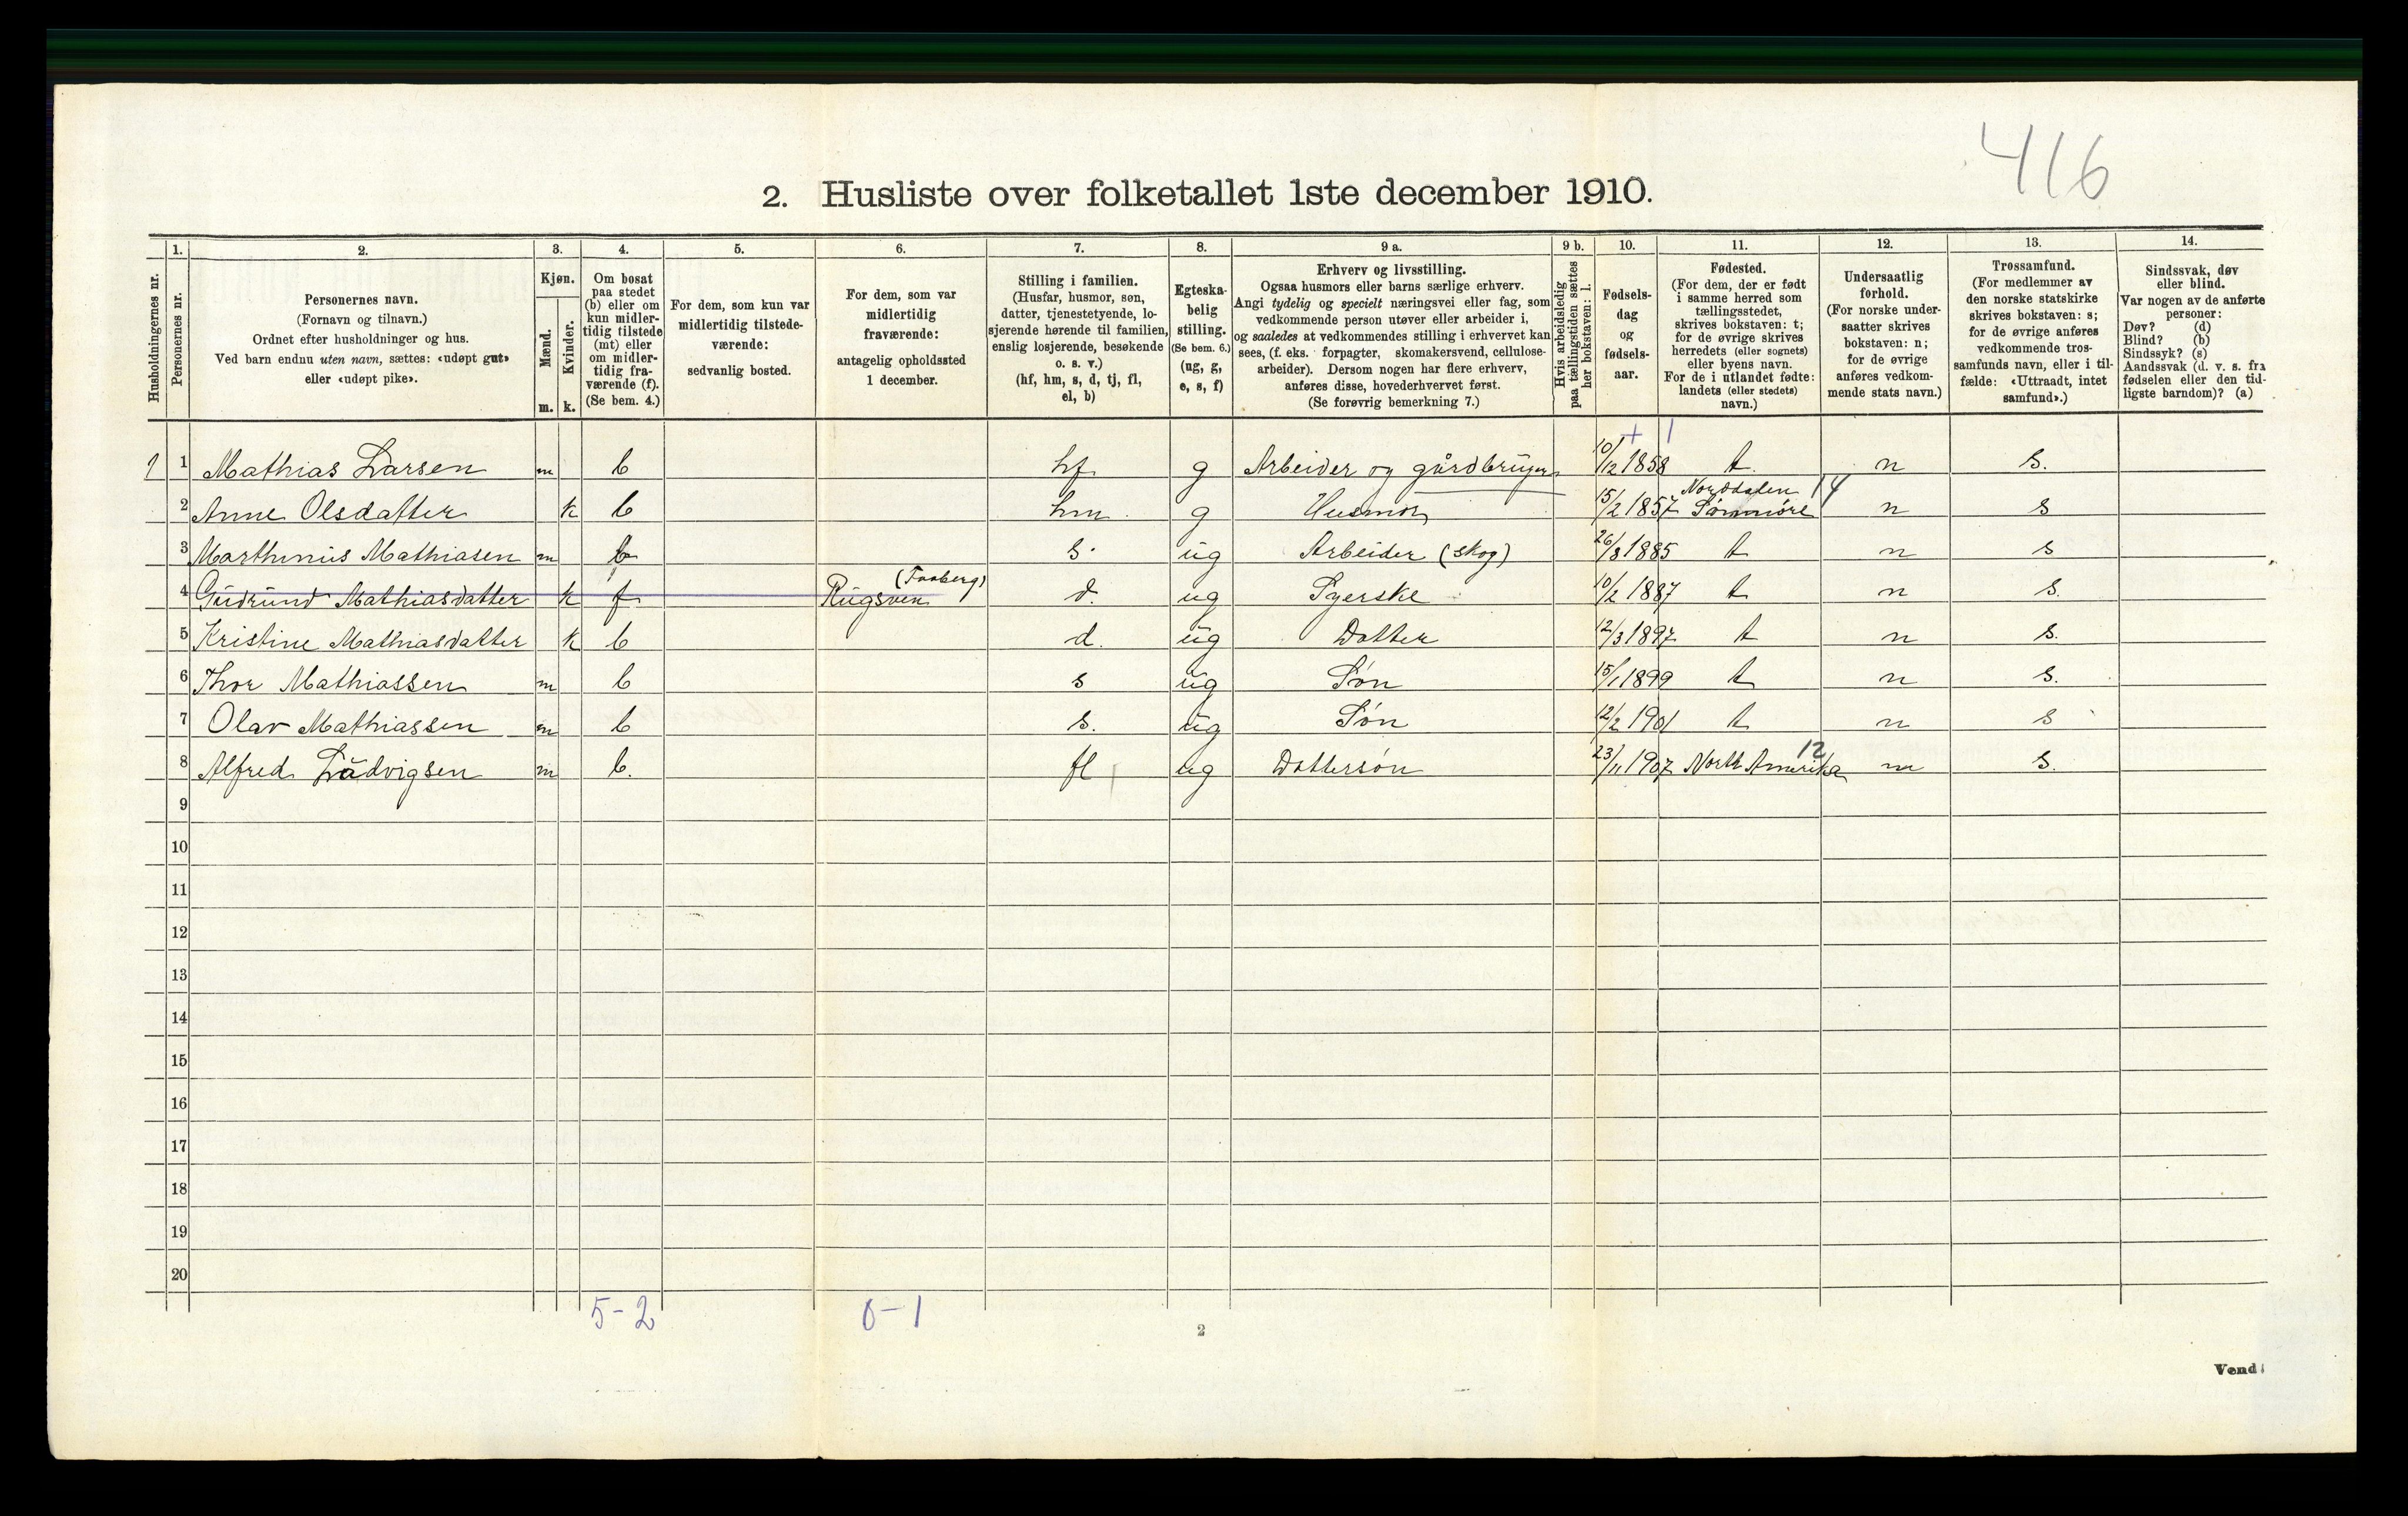 416
2. Husliste over folketallet 1ste december 1910.
Husholdningernes nr.
1.
Personernes nr.
2.
Personernes navn.
(Fornavn og tilnavn.)
Ordnet efter husholdninger og hus.
Ved barn endnu uten navn, sættes: «udøpt gut»
eller «udøpt pike».
3.
Kjøn.
Mænd.
Kvinder.
m. k.
4.
Om bosat
paa stedet
(b) eller om
kun midler-
tidig tilstede
(mt) eller
om midler-
tidig fra-
værende (f).
(Se bem. 4.)
5.
For dem, som kun var
midlertidig tilstede-
værende:
sedvanlig bosted.
6.
For dem, som var
midlertidig
fraværende:
antagelig opholdssted
1 december.
7.
Stilling i familien.
(Husfar, husmor, søn,
datter, tjenestetyende, lo-
sjerende hørende til familien,
enslig losjerende, besøkende
o. s. v.)
(hf, hm, s, d, tj, fl,
el, b)
8.
Egteska-
belig
stilling.
(Se bem. 6.)
(ug, g,
e, s, f)
9 a.
Erhverv og livsstilling.
Ogsaa husmors eller barns særlige erhverv.
Angi tydelig og specielt næringsvei eller fag, som
vedkommende person utøver eller arbeider i,
og saaledes at vedkommendes stilling i erhvervet kan
sees, (f. eks. forpagter, skomakersvend, cellulose-
arbeider). Dersom nogen har flere erhverv,
anføres disse, hovederhvervet først.
(Se forøvrig bemerkning 7.)
9 b.
Hvis arbeidsledig
paa tællingstiden sættes
her bokstaven: l.
10.
Fødsels-
dag
og
fødsels-
aar.
11.
Fødested.
(For dem, der er født
i samme herred som
tællingsstedet,
skrives bokstaven: t;
for de øvrige skrives
herredets (eller sognets)
eller byens navn.
For de i utlandet fødte:
landets (eller stedets)
navn.)
12.
Undersaatlig
forhold.
(For norske under-
saatter skrives
bokstaven: n;
for de øvrige
anføres vedkom-
mende stats navn.)
13.
Trossamfund.
(For medlemmer av
den norske statskirke
skrives bokstaven: s;
for de øvrige anføres
vedkommende tros-
samfunds navn, eller i til-
fælde: «Uttraadt, intet
samfund».)
14.
Sindssvak, døv
eller blind.
Var nogen av de anførte
personer:
Døv? (d)
Blind? (b)
Sindssyk? (s)
Aandssvak (d. v. s. fra
fødselen eller den tid-
ligste barndom)? (a)
+ 1
1 1 Mathias Larsen m b hf g Arbeider og gårdbruger 10/12 1858 t. n s.
2 Anne Olsdatter k b hm g Husmor 15/2 1857 Norddalen Sønmøre 14 n s
3 Marthinus Mathiasen m b s. ug Arbeider (skog) 26/8 1885 t n s
4 Gudrund Mathiasdatter k f Rugsven (Faaberg) d. ug Syerske 10/2 1887 t n s.
5 Kristine Mathiasdatter k b d. ug Datter 12/3 1897 t n s.
6 Thor Mathiassen m b s ug Søn 15/1 1899 t n s.
7 Olav Mathiassen m b s. ug Søn 12/2 1901 t n s
8 Alfred Ludvigsen m b. fl ug Dattersøn 23/11 1907 North Amerika 12 n s.
9
10
11
12
13
14
15
16
17
18
19
20
5-2 0-1
2
Vend!